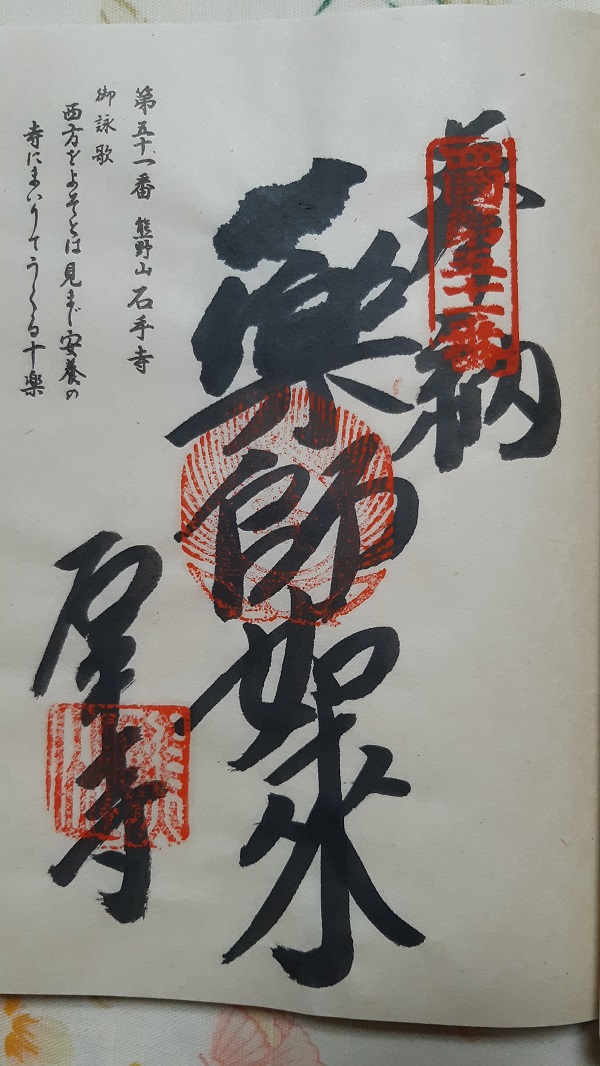 奉納
四國第五十一番
薬師如来
石手寺
第五十一番 熊野山 石手寺
御詠歌
西方をよそとは見まじ安養の
寺にまいりてうくる十楽